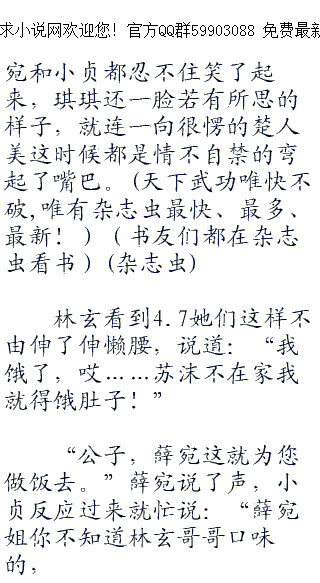 求小说网欢迎您！官方QQ群59903088 免费最新
宛和小贞都忍不住笑了起
来，琪琪还一脸若有所思的
样子，就连一向很愣的楚人
美这时候都是情不自禁的弯
起了嘴巴。(天下武功唯快不
破,唯有杂志虫最快、最多、
最新！）（书友们都在杂志
虫看书）(杂志虫)
林玄看到4.7她们这样不
由伸了伸懒腰，说道：“我
饿了，哎……苏沫不在家我
就得饿肚子！”
“公子，薛宛这就为您
做饭去。”薛宛说了声，小
贞反应过来就忙说：“薛宛
姐你不知道林玄哥哥口味
的，